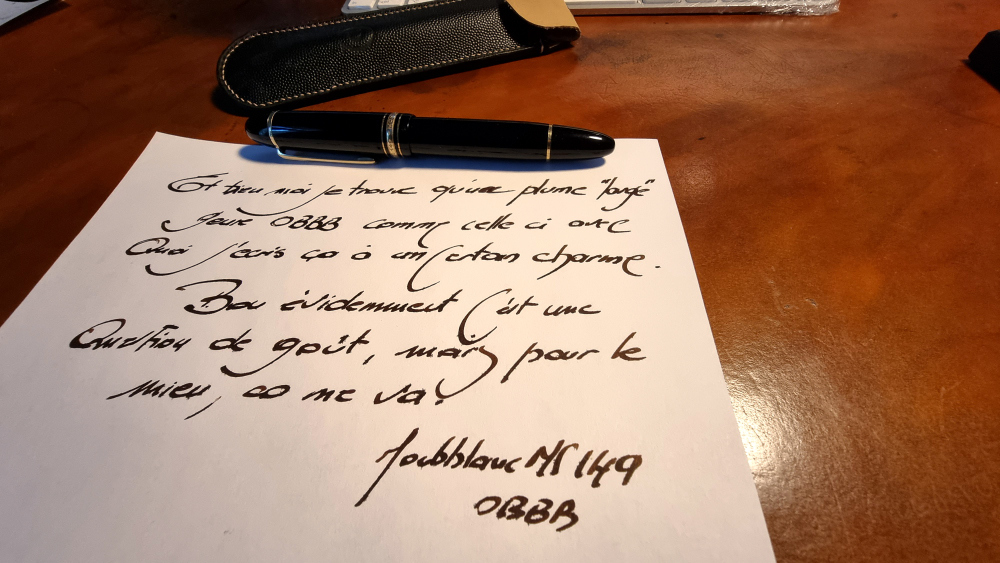 Et bien moi je trouve qu'une plume "large"
genre OBBB comme celle ci avec
Quoi j'écris ça a un certain charme.
Bon évidemment c'est une
Question de goût, mais pour le
mien, ça me va!
Montblanc 149
OBBB